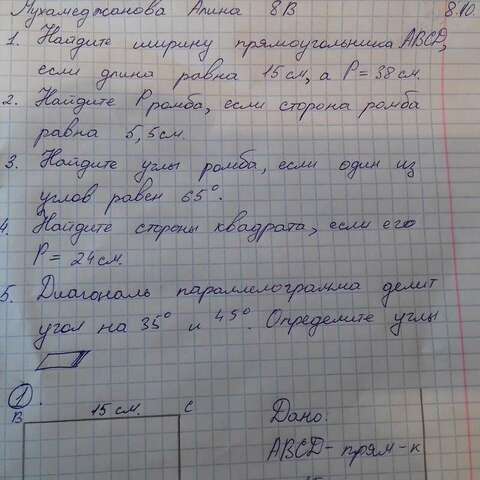 Мухамеджанова Амина 8В 8.10
1. Найдите ширину прямоугольника ABCD,
если длина равна 15 см, а P = 38 см.
2. Найдите P ромба, если сторона ромба
равна 5,5 см.
3. Найдите углы ромба, если один из
углов равен 65°.
4. Найдите стороны квадрата, если его
P = 24 см.
5. Диагональ параллелограмма делит
угол на 35° и 45°. Определите углы
1
B 15 см. C Дано:
ABCD - прям-к